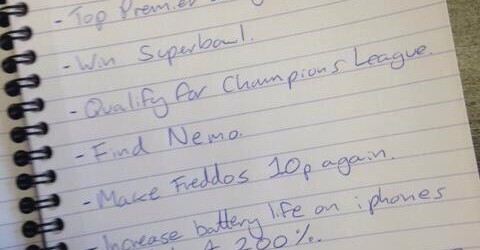 - Top Premier
- Win Superbowl.
- Qualify for Champions League.
- Find Nemo.
- Make Freddos 10p again.
- Increase battery life on iphones
200%.